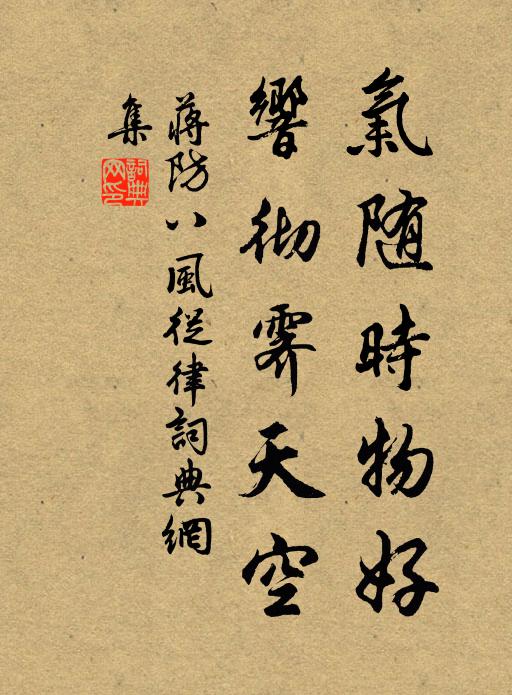 氣随時物好
響彻霽天空
蔣防八風從律詞典網
集
詞典
网印